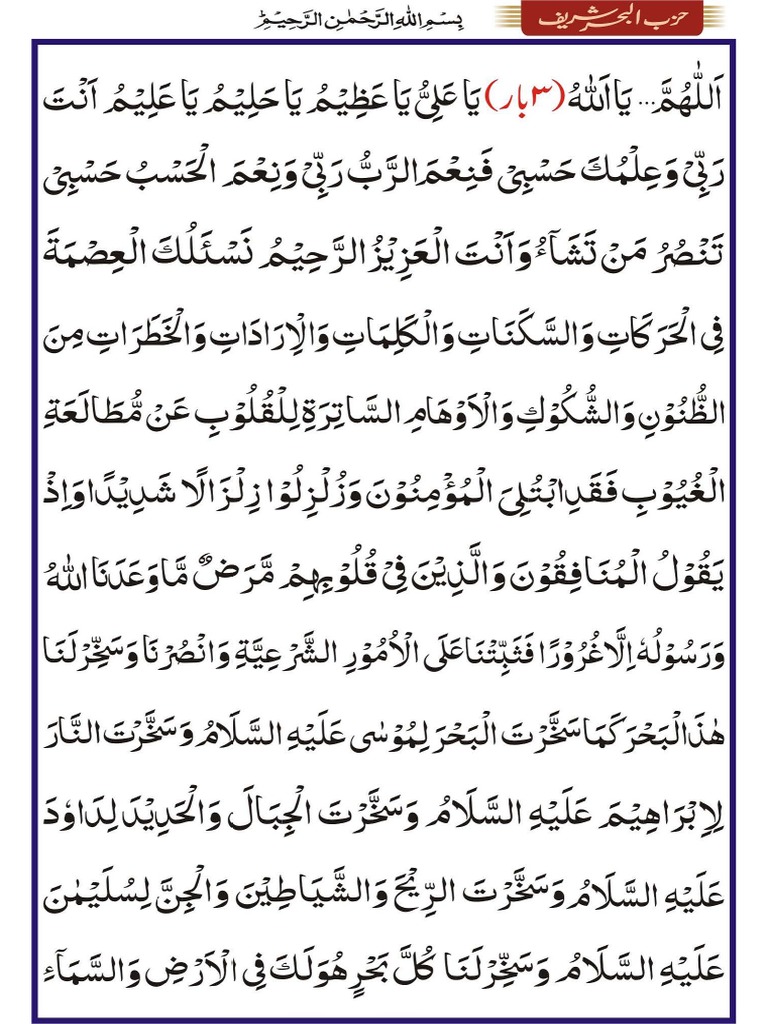 حزب البحر شریف
بِسْمِ اللهِ الرَّحْمٰنِ الرَّحِيْمِ
اَللّٰهُمَّ... يَا اَللهُ (۳ بار) يَا عَلِيُّ يَا عَظِيْمُ يَا حَلِيْمُ يَا عَلِيْمُ اَنْتَ
رَبِّيْ وَعِلْمُكَ حَسْبِيْ فَنِعْمَ الرَّبُّ رَبِّيْ وَنِعْمَ الْحَسْبُ حَسْبِيْ
تَنْصُرُ مَنْ تَشَآءُ وَاَنْتَ الْعَزِيْزُ الرَّحِيْمُ نَسْئَلُكَ الْعِصْمَةَ
فِي الْحَرَكَاتِ وَالسَّكَنَاتِ وَالْكَلِمَاتِ وَالْاِرَادَاتِ وَالْخَطَرَاتِ مِنَ
الظُّنُوْنِ وَالشُّكُوْكِ وَالْاَوْهَامِ السَّاتِرَةِ لِلْقُلُوْبِ عَنْ مُّطَالَعَةِ
الْغُيُوْبِ فَقَدِ ابْتُلِيَ الْمُؤْمِنُوْنَ وَزُلْزِلُوْا زِلْزَالًا شَدِيْدًا وَاِذْ
يَقُوْلُ الْمُنَافِقُوْنَ وَالَّذِيْنَ فِيْ قُلُوْبِهِمْ مَّرَضٌ مَّا وَعَدَنَا اللهُ
وَرَسُوْلُهٗ اِلَّا غُرُوْرًا فَثَبِّتْنَا عَلَى الْاُمُوْرِ الشَّرْعِيَّةِ وَانْصُرْنَا وَسَخِّرْ لَنَا
هٰذَا الْبَحْرَ كَمَا سَخَّرْتَ الْبَحْرَ لِمُوْسٰى عَلَيْهِ السَّلَامُ وَسَخَّرْتَ النَّارَ
لِاِبْرَاهِيْمَ عَلَيْهِ السَّلَامُ وَسَخَّرْتَ الْجِبَالَ وَالْحَدِيْدَ لِدَاوٗدَ
عَلَيْهِ السَّلَامُ وَسَخَّرْتَ الرِّيْحَ وَالشَّيَاطِيْنَ وَالْجِنَّ لِسُلَيْمٰنَ
عَلَيْهِ السَّلَامُ وَسَخِّرْ لَنَا كُلَّ بَحْرٍ هُوَ لَكَ فِي الْاَرْضِ وَالسَّمَآءِ